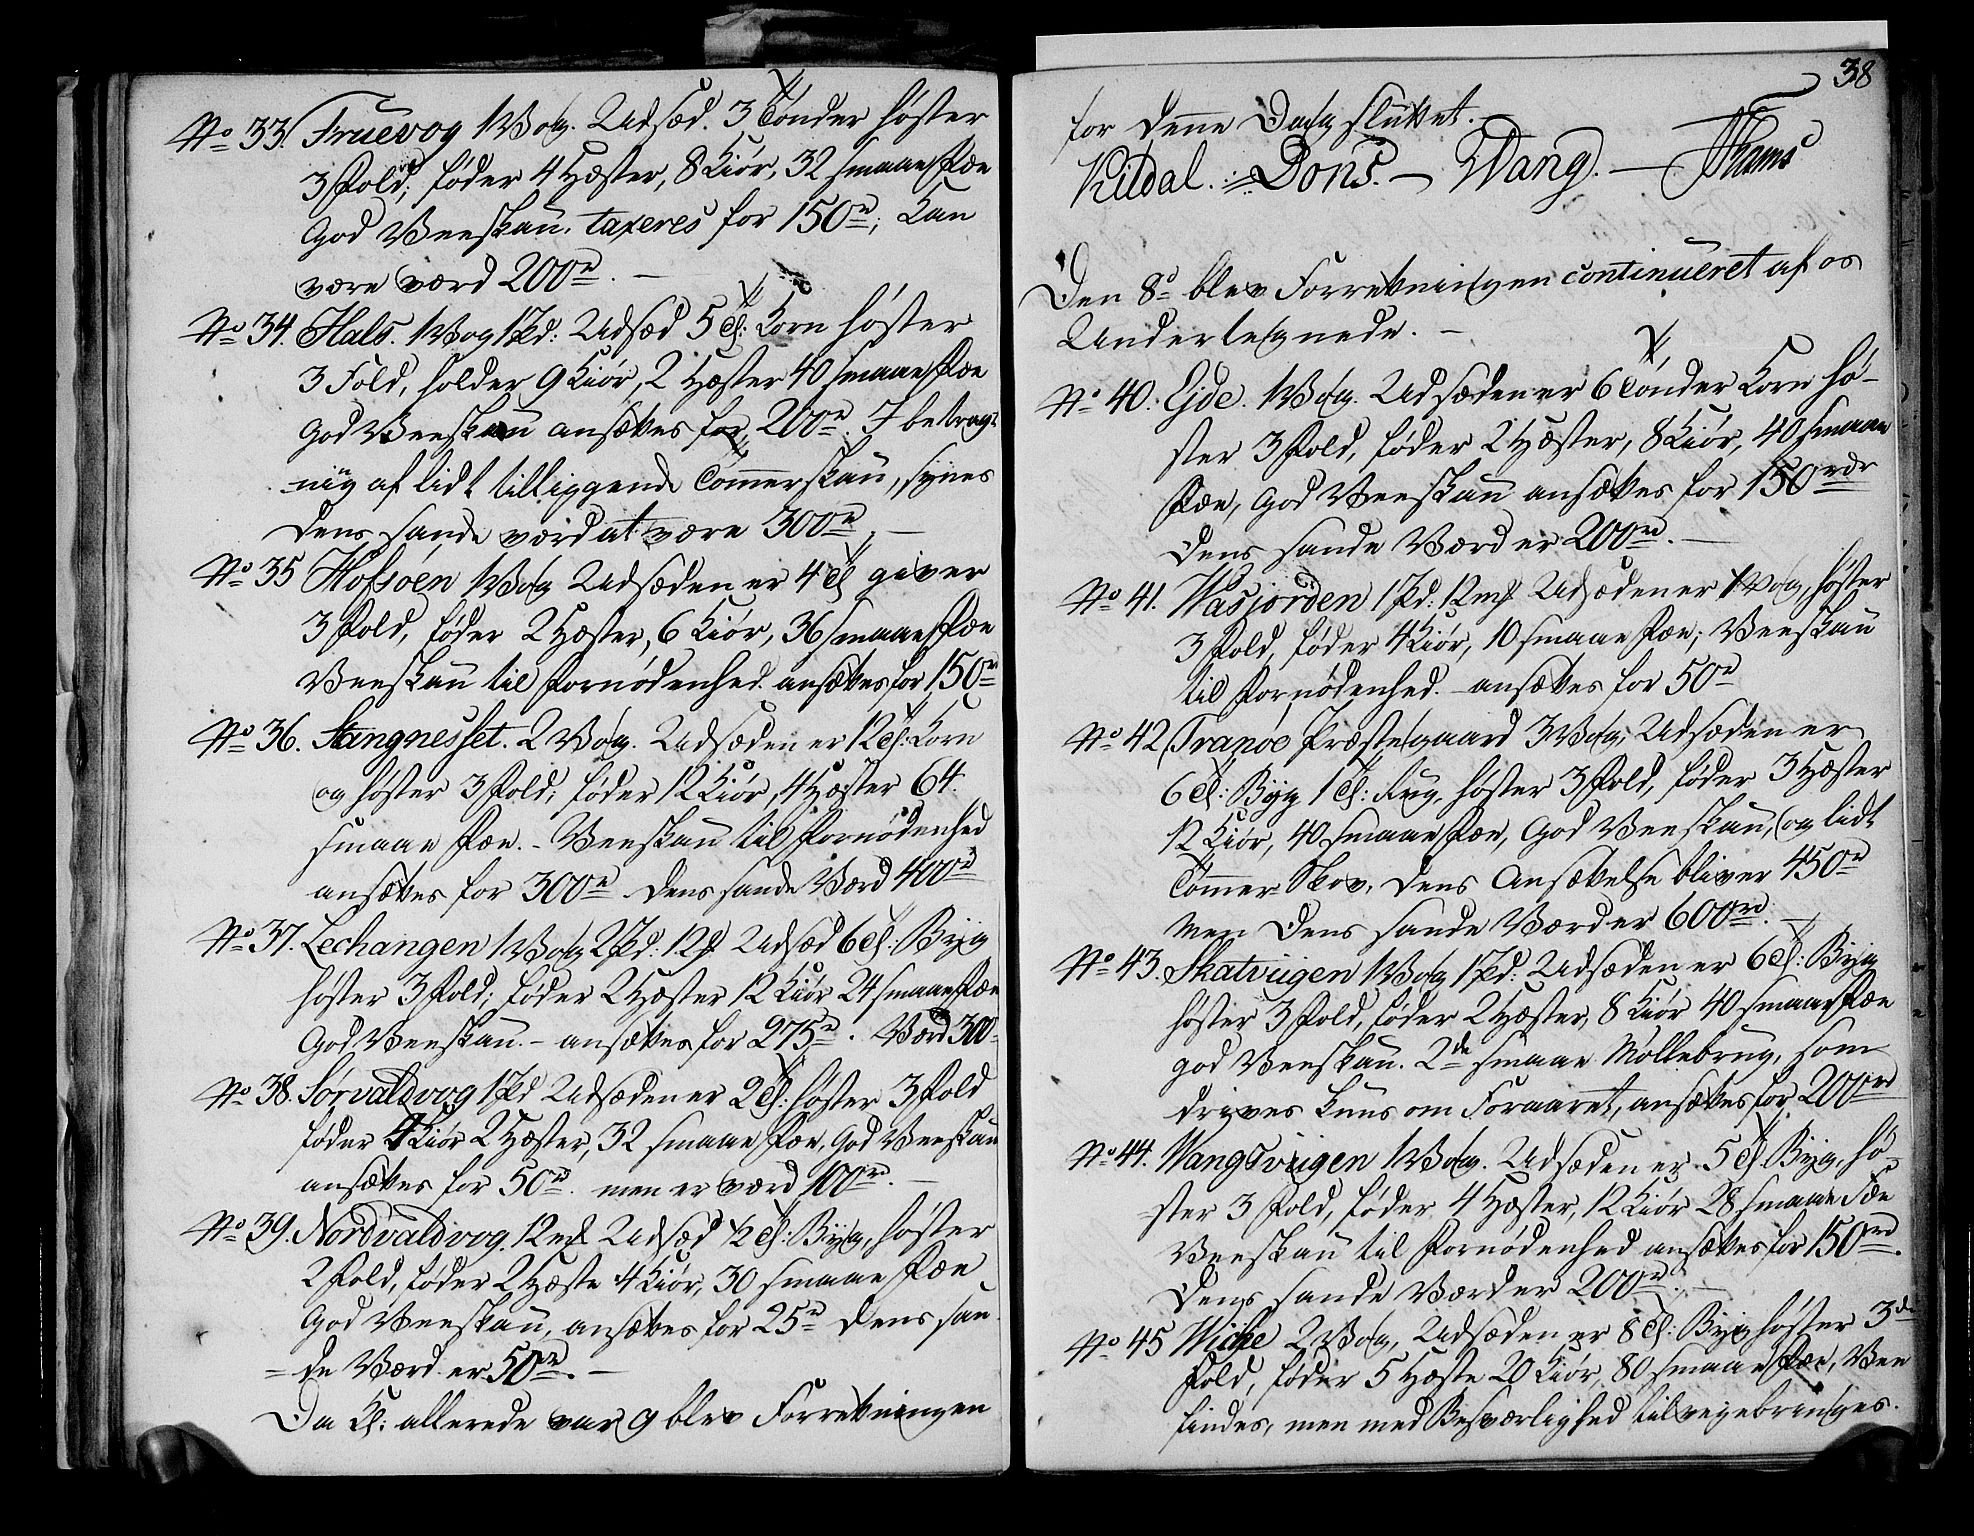 No 33. Truevog 1 Vog. Udsæd. 3 Tønder høster
3 Fold; føder 4 Hæster, 8 Kiør, 32 smaae Fæe
God Veeskau. taxeres for 150rd; kan
være værd 200rd. —
No 34. Hals. 1 Vog 1 Pd: Udsæd 5 T: Korn høster
3 Fold, holder 9 Kiør, 2 Hæster 40 smaae Fæe
God Veeskau ansættes for 200rd. I betragt
ning af lidt tilliggende Tømmerskau, synes
dens sande værd at være 300rd. —
No 35 Hofsøen 1 Vog Udsæden er 4 T giver
3 Fold, føder 2 Hæster, 6 Kiør, 36 smaae Fæe
Veeskau til Fornødenhed ansættes for 150rd
No 36. Stangnesset. 2 Vog. Udsæden er 12 T: Korn
og høster 3 Fold; føder 12 Kiør, 4 Hæster 64.
smaae Fæe. - Veeskau til Fornødenhed
ansættes for 300rd dens sande Værd 400rd
No 37. Lechangen 1 Vog 2 Pd: 12 Udsæd 6 T: Byg
høster 3 Fold; føder 2 Hæster 12 Kiør 24 smaae Fæe
God Veeskau. - ansættes for 275rd. Værd 300
No 38. Sørvaldvog 1 Pd Udsæden er 2 T: høster 3 Fold
føder 4 Kiør 2 Hæster, 32 smaae Fæe, God Veeskau
ansættes for 50rd. men er værd 100rd. —
No 39. Nordvaldvog. 12 mk Udsæd 1/2 T: Byg, høster
2 Fold, føder 2 Hæste 4 Kiør, 30 smaae Fæe
God Veeskau, ansættes for 25rd dens san
= de Værd er 50rd. —
Da Kl: allerede var 9 blev Forretningen
38
for denne Dag sluttet.
Kildal. = Dons. — Wang. — Thams
Den 8de blev Forretningen continueret af os
Undertegnede. —
No 40. Ejde. 1 Vog. Udsæden er 6 Tønder Korn hø-
ster 3 Fold, føder 2 Hæster, 8 Kiør, 40 smaae
Fæe, God Veeskau ansættes for 150rdr
dens sande Værd er 200rd. —
No 41. Wasjorden 1 Pd: 12 mk Udsæden er 1 Vog, høster
3 Fold, føder 4 Kiør, 10 smaae Fæe; Veeskau
til Fornødenhed. - ansættes for 50rd
No 42 Tranøe Præstegaard 3 Vog; Udsæden er
6 T: Byg 1 T: Rug, høster 3 Fold, føder 3 Hæster
12 Kiør, 40 smaae Fæe, God Veeskau, og lidt
Tømmer Skov, dens Ansættelse bliver 450rd
men dens sande Værd er 600rd. —
No 43. Skatvigen 1 Vog 1 Pd: Udsæden er 6 T: Byg
høster 3 Fold, føder 2 Hæster, 8 Kiør 40 smaae Fæe
god Veeskau. 2de smaae Møllebrug, som
drives kuns om Foraaret, ansættes for 200rd
No 44. Wangsvigen 1 Vog. Udsæden er 5 T Byg, hø-
ster 3 Fold, føder 4 Hæster, 12 Kiør 28 smaae Fæe
Veeskau til Fornødenhed ansættes for 150rd.
dens sande Værd er 200rd. —
No 45 Wiche 2 Vog, Udsæden er 8 T: Byg høster 3de
Fold, føder 5 Hæste 20 Kiør, 80 smaae Fæe, Vee
findes, men med Besværlighed tilveyebringes.